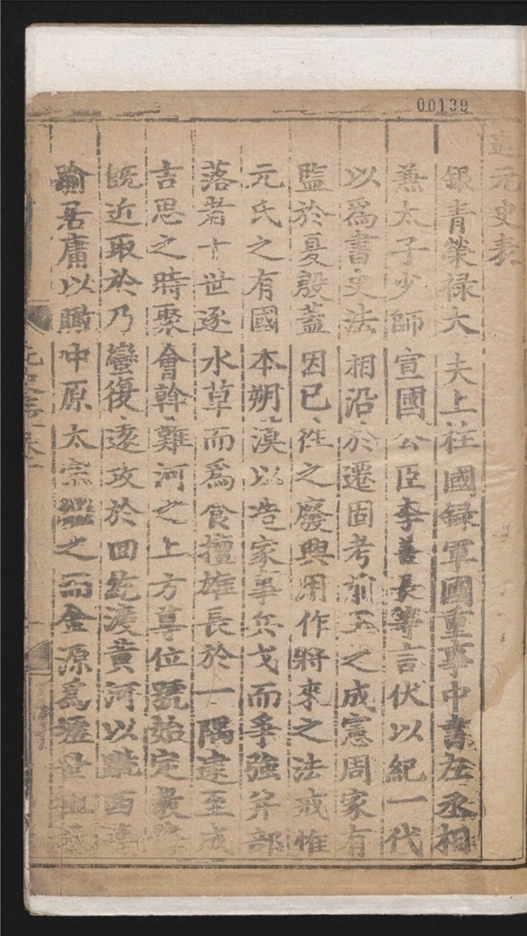 00139
進元史表
銀青榮祿大夫上柱國錄軍國重事中書左丞相
兼太子少師宣國公臣李善長等言伏以紀一代
以爲書史法相沿於遷固考前王之成憲周家有
監於夏殷蓋因已徃之廢興用作將來之法戒惟
元氏之有國本朔漠以造家事兵戈而爭強并部
落者十世逐水草而爲食擅雄長於一隅逮至成
吉思之時聚會斡難河之上方尊位號始定教
旣近取於乃蠻復遠攻於回紇渡黃河以蹴西
踰居庸以瞰中原太宗 之而金源爲墟世祖